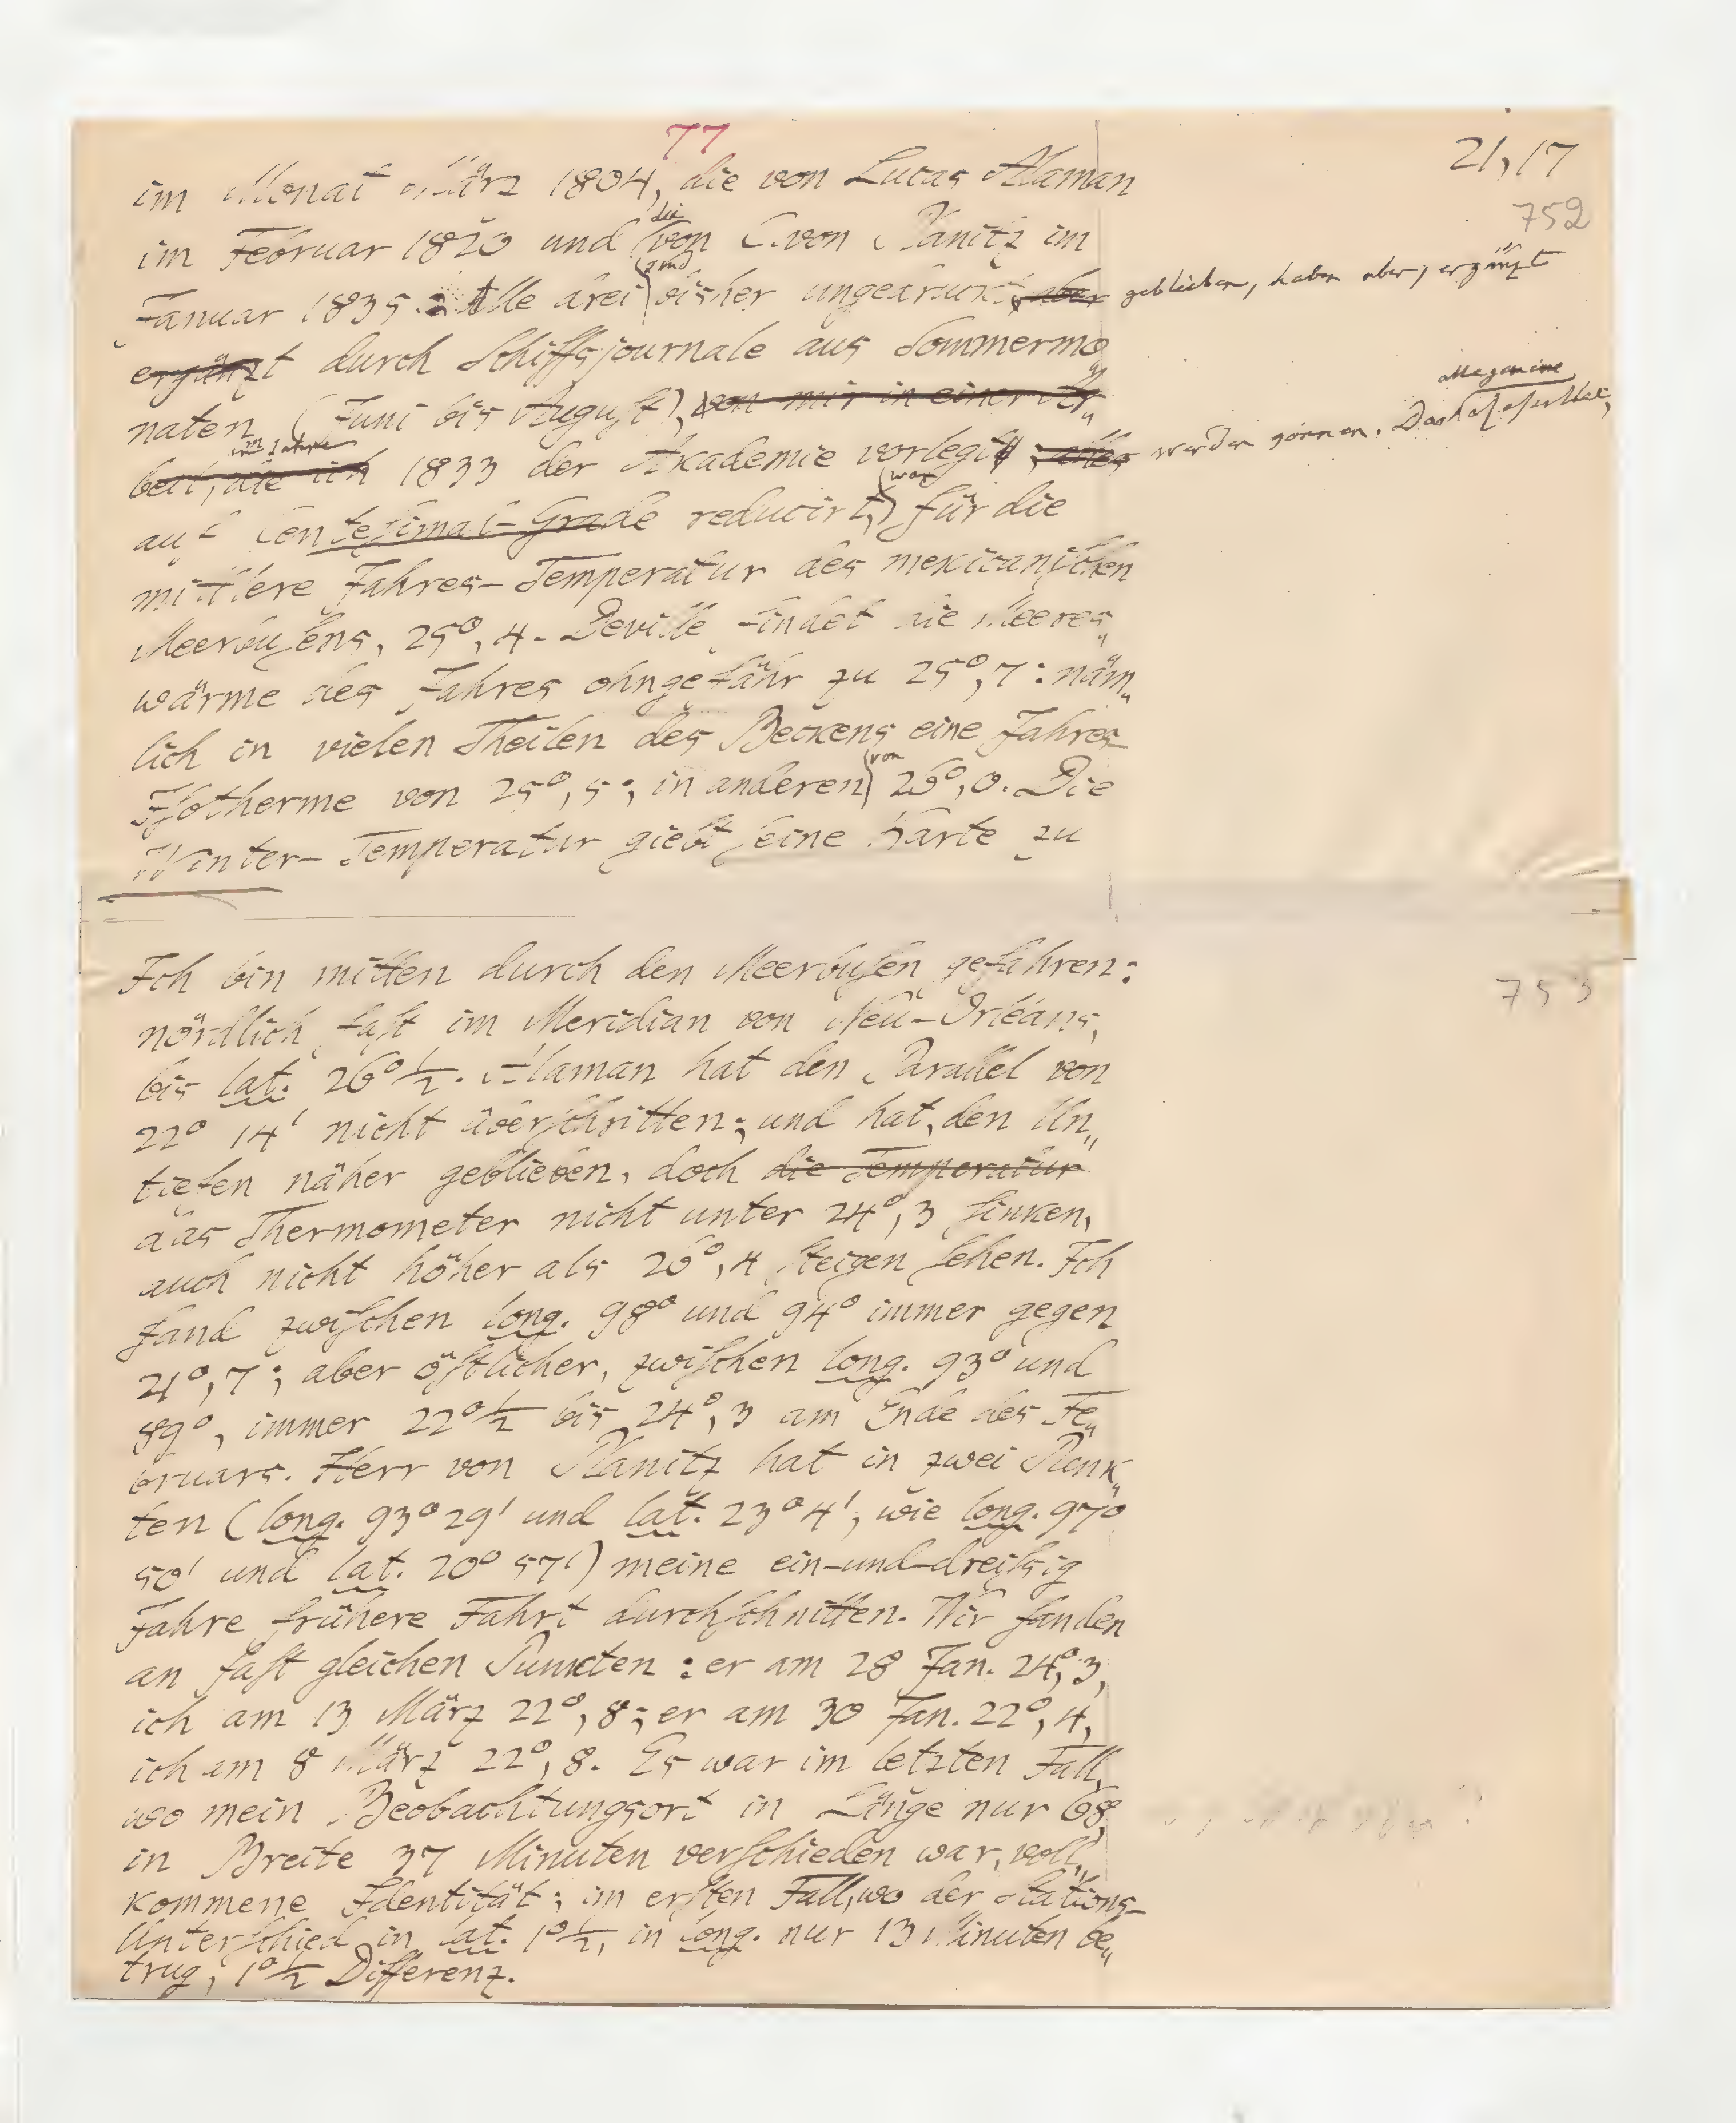 77
21,17
752
im Monat März 1804, die von Lucas Alaman
im Februar 1820 und die von C. von Kanitz im
Januar 1835. Alle drei sind bisher ungedruckt aber geblieben, haben aber, ergänzt
ergänzt durch Schiffsjournale aus Sommermo„
naten (Juni bis August), von mir in einer Ar„
beit, die ich im Jahre 1833 der Akademie vorlegte, alles werden können. Das allgemeine
auf Centesimal-Grade reducirt, war für die
mittlere Jahres-Temperatur des mexicanischen
Meerbusens, 25°,4. Deville findet die Meeres„
wärme des Jahres ohngefähr zu 25°,7: näm„
lich in vielen Theilen des Beckens eine Jahres-
Isotherme von 25°,5; in anderen von 26°,0. Die
Winter-Temperatur giebt seine Karte zu
753
Ich bin mitten durch den Meerbusen gefahren:
nördlich fast im Meridian von Neu-Orléans,
bis lat. 26°½. Alaman hat den Parallel von
22° 14' nicht überschritten; und hat, den Un„
tiefen näher geblieben, doch die Temperatur
das Thermometer nicht unter 24°,3 sinken,
auch nicht höher als 26°,4 steigen sehen. Ich
fand zwischen long. 98° und 94° immer gegen
21°,7; aber östlicher, zwischen long. 93° und
89°, immer 22°½ bis 24°,3 am Ende des Fe„
bruars. Herr von Kanitz hat in zwei Punk„
ten (long. 93° 29' und lat. 23° 4', wie long. 97°
50' und lat. 20° 57') meine ein-und-dreißig
Jahre frühere Fahrt durchschnitten. Wir fanden
an fast gleichen Punkten: er am 28 Jan. 24°,3,
ich am 13 März 22°,8; er am 30 Jan. 22°,4,
ich am 8 März 22°,8. Es war im letzten Fall,
wo mein Beobachtungsort in Länge nur 68,
in Breite 37 Minuten verschieden war, voll„
kommene Identität; im ersten Fall, wo der Stations-
Unterschied in lat. 1°½, in long. nur 13 Minuten be„
trug, 1°½ Differenz.